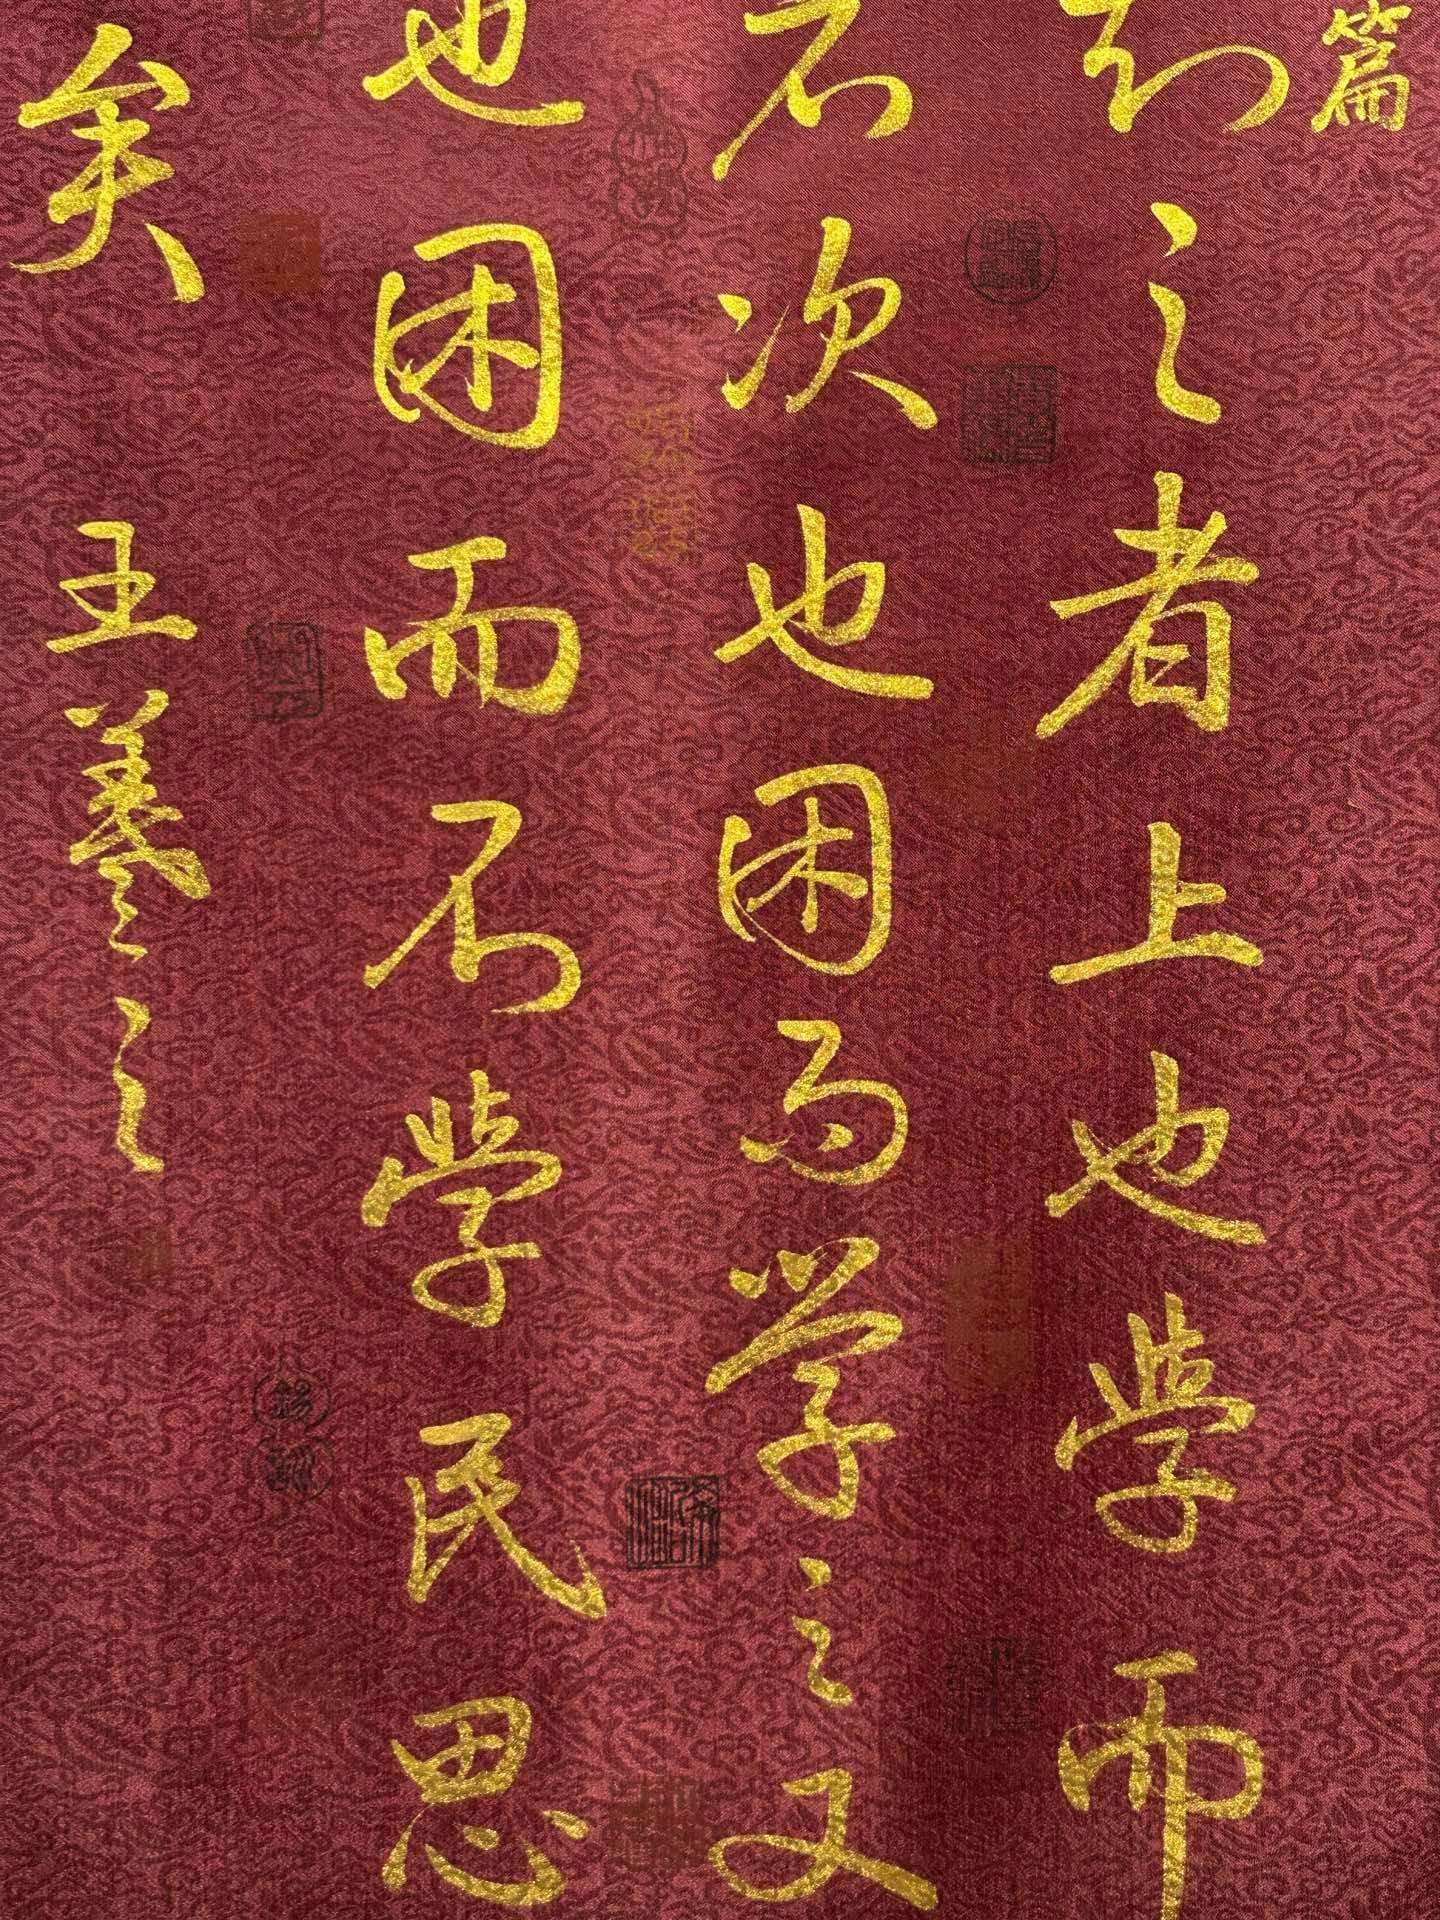 篇
之者上也学而
次也困而学之又
也困而不学民思
矣 王羲之